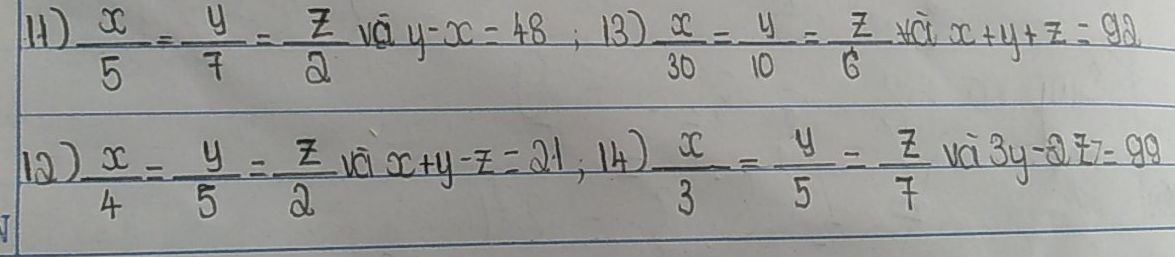 11) x/5 = y/7 = z/2 và y-x = 48 ; 13) x/30 = y/10 = z/6 và x+y+z = 92
12) x/4 = y/5 = z/2 và x+y-z = 21 ; 14) x/3 = y/5 = z/7 và 3y-2z = 99